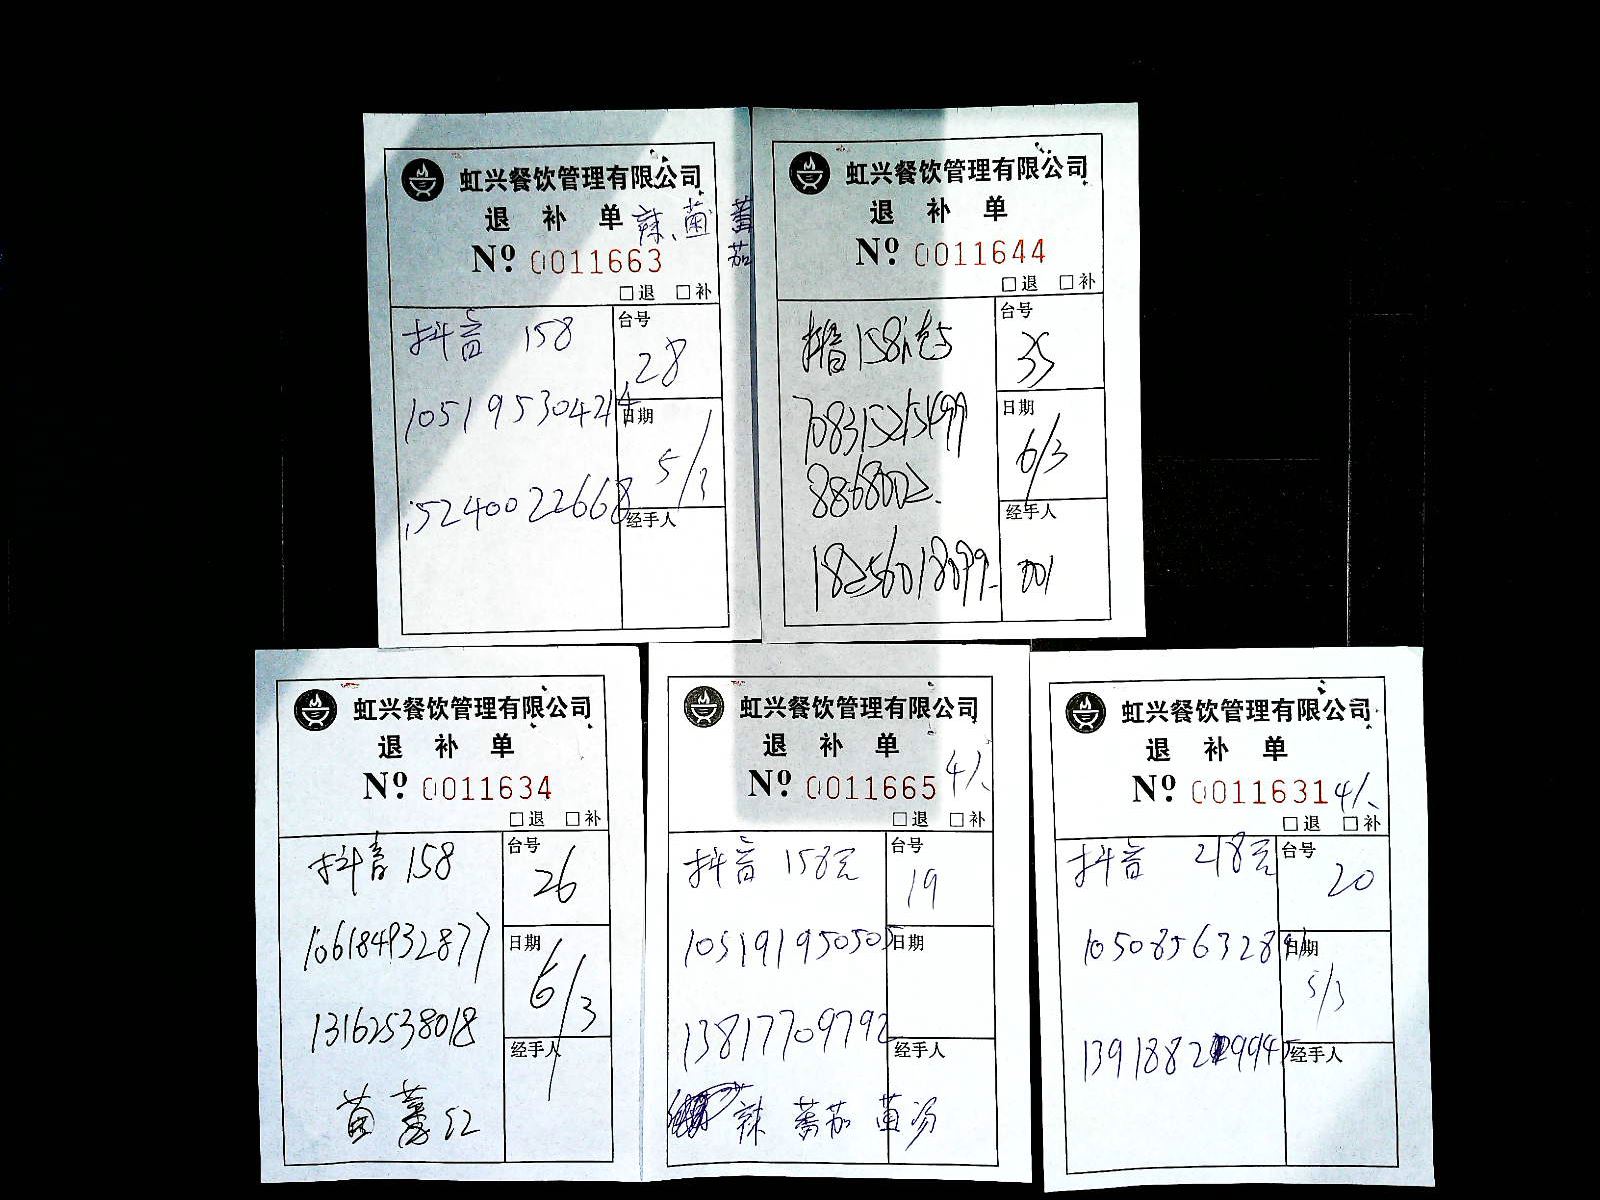 虹兴餐饮管理有限公司
退 补 单
辣、菌 蕃茄
Nº 0011663
□退 □补
抖音 158
台号
28
105195304214
日期
5/3
15240022668
经手人
虹兴餐饮管理有限公司
退 补 单
Nº 0011644
□退 □补
抖音158
台号
35
日期
6/3
经手人
001
虹兴餐饮管理有限公司
退 补 单
Nº 0011634
□退 □补
抖音 158
台号
26
106184932877
日期
6/3
13162538018
经手人
菌 蕃 红
虹兴餐饮管理有限公司
退 补 单
Nº 0011665 4人
□退 □补
抖音 158元
台号
19
105191950505
日期
13817709792
经手人
辣 蕃茄 菌汤
虹兴餐饮管理有限公司
退 补 单
Nº 0011631 4人
□退 □补
抖音 218元
台号
20
日期
5/3
经手人